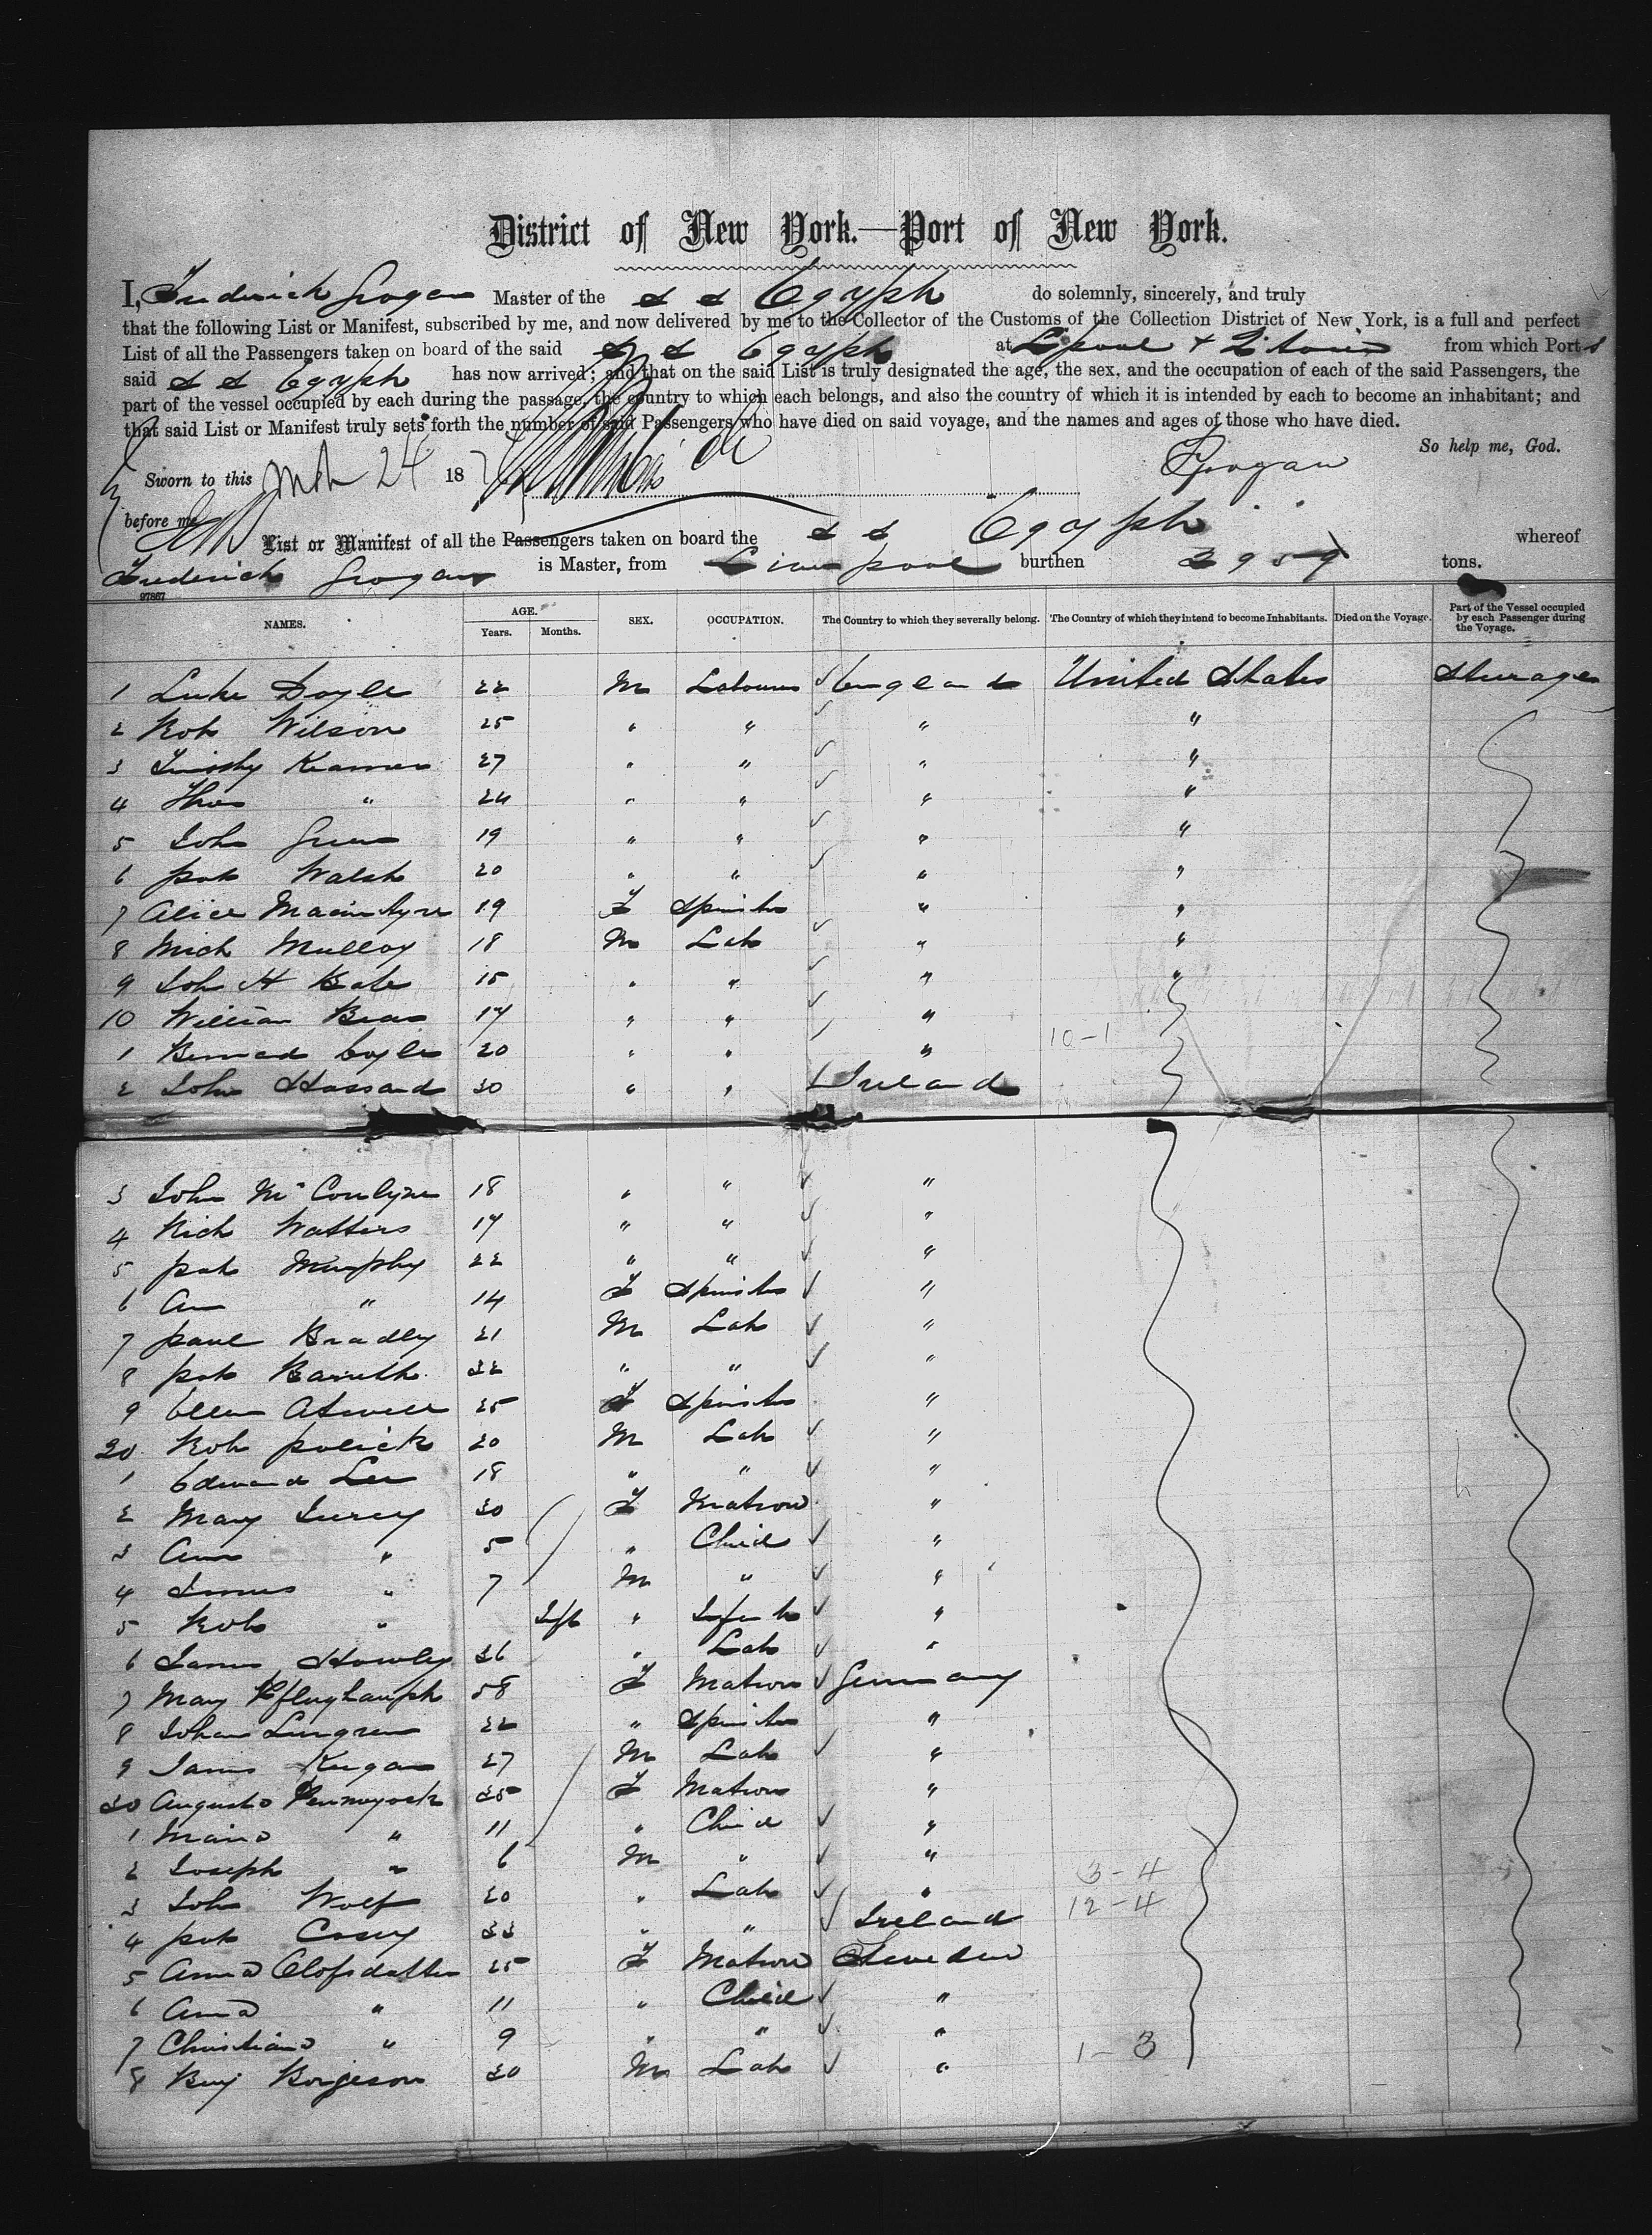 District of New York.—Port of New York.
I, Frederick Grogan Master of the S S Egypt do solemnly, sincerely, and truly
that the following List or Manifest, subscribed by me, and now delivered by me to the Collector of the Customs of the Collection District of New York, is a full and perfect
List of all the Passengers taken on board of the said S S Egypt at L'pool + Q'town from which Ports
said S S Egypt has now arrived; and that on the said List is truly designated the age, the sex, and the occupation of each of the said Passengers, the
part of the vessel occupied by each during the passage, the country to which each belongs, and also the country of which it is intended by each to become an inhabitant; and
that said List or Manifest truly sets forth the number of said Passengers who have died on said voyage, and the names and ages of those who have died.
So help me, God.
Sworn to this Mch 24 187 Grogan
before me
List or Manifest of all the Passengers taken on board the S S Egypt whereof
Frederick Grogan is Master, from Liverpool burthen 2959 tons.
97867
NAMES. AGE. Years. Months. SEX. OCCUPATION. The Country to which they severally belong. The Country of which they intend to become Inhabitants. Died on the Voyage. Part of the Vessel occupied by each Passenger during the Voyage.
1 Luke Doyle 22 M Labourer England United States Steerage
2 Rob Wilson 25 " " " "
3 Timothy 27 " " " "
4 Thos " 24 " " " "
5 John Green 19 " " " "
6 Pat Walsh 20 " " " "
7 Alice Macintyre 19 F Spinster " "
8 Mich Mulloy 18 M Lab " "
9 John H Bale 15 " " " "
10 William 17 " " "
1 Bernard Coyle 20 " " " 10-1
2 John Hassard 30 " " Ireland
3 John 18 " " "
4 Rich Watters 17 " " "
5 Pat Murphy 22 " " "
6 Ann " 14 F Spinster "
7 Paul Bradley 21 M Lab "
8 Pat 22 " " "
9 Ellen Atwell 25 F Spinster "
20 Rob 20 M Lab "
1 Edward Lee 18 " " "
2 Mary 30 F Matron "
3 Ann " 5 " Child "
4 " 7 M " "
5 Rob " Inft " Infant "
6 James Howley 26 " Lab "
7 Mary 58 F Matron Germany
8 Johan Lungren 22 " Spinster "
9 James Keegan 27 M Lab "
30 Augusta 35 F Matron "
1 Maria " 11 " Child "
2 Joseph " 6 M " " 3-4
3 John Wolf 20 " Lab " 12-4
4 Pat Casey 33 " " Ireland
5 Anna Olofsdatter 25 F Matron Sweden
6 Anna " 11 " Child "
7 Christiana " 9 " " " 1-3
8 Benj Borjeson 30 M Lab "